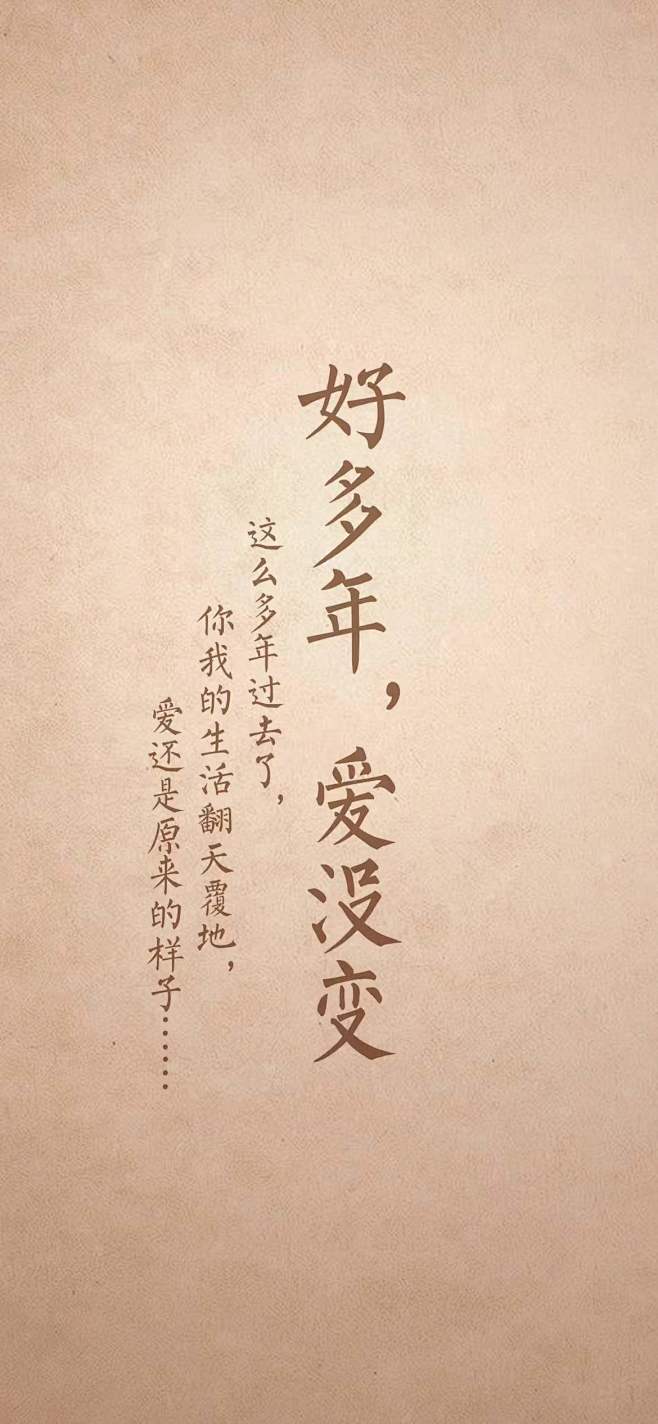 好多年，爱没变
这么多年过去了，
你我的生活翻天覆地，
爱还是原来的样子……